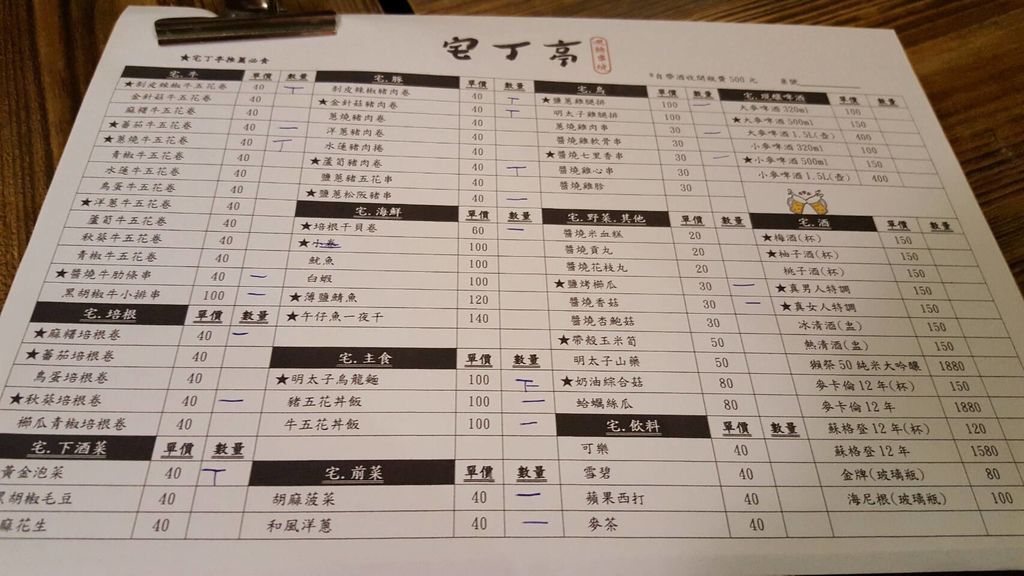 宅丁亭
★宅丁亭推薦必食
*自帶酒收開瓶費500元 桌號
宅.牛 單價 數量
★剝皮辣椒牛五花卷 40 T
金針菇牛五花卷 40
麻糬牛五花卷 40
★蕃茄牛五花卷 40 一
★蔥燒牛五花卷 40 T
青椒牛五花卷 40
水蓮牛五花卷 40
鳥蛋牛五花卷 40
★洋蔥牛五花卷 40
蘆筍牛五花卷 40
秋葵牛五花卷 40
青椒牛五花卷 40
★醬燒牛肋條串 40 一
黑胡椒牛小排串 100 一
宅.培根 單價 數量
★麻糬培根卷 40 一
★蕃茄培根卷 40
鳥蛋培根卷 40
★秋葵培根卷 40 一
櫛瓜青椒培根卷 40
宅.下酒菜 單價 數量
黃金泡菜 40 T
黑胡椒毛豆 40
麻花生 40
宅.豚 單價 數量
剝皮辣椒豬肉卷 40
★金針菇豬肉卷 40 T
蔥燒豬肉卷 40 T
洋蔥豬肉卷 40
水蓮豬肉捲 40
★蘆筍豬肉卷 40
鹽蔥豬五花串 40 T
★鹽蔥松阪豬串 40 一
宅.海鮮 單價 數量
★培根干貝卷 60 一
★小卷 100
魷魚 100
白蝦 100
★薄鹽鯖魚 120
★午仔魚一夜干 140
宅.主食 單價 數量
★明太子烏龍麵 100 下
豬五花丼飯 100 一
牛五花丼飯 100 一
宅.前菜 單價 數量
胡麻菠菜 40 一
和風洋蔥 40 一
宅.鳥 單價 數量
★鹽蔥雞腿排 100 一
明太子雞腿排 100
蔥燒雞肉串 30 一
醬燒雞軟骨串 30
★醬燒七里香串 30 一
醬燒雞心串 30
醬燒雞胗 30
宅.野菜.其他 單價 數量
醬燒米血糕 20
醬燒貢丸 20
醬燒花枝丸 20
★鹽烤櫛瓜 30 一
醬燒香菇 30 一
醬燒杏鮑菇 30
★帶殼玉米筍 50
明太子山藥 50
★奶油綜合菇 80
蛤蠣絲瓜 80
宅.飲料 單價 數量
可樂 40
雪碧 40
蘋果西打 40
麥茶 40
宅.現壓啤酒 單價 數量
大麥啤酒 320ml 100
★大麥啤酒 500ml 150
大麥啤酒 1.5L(壺) 400
小麥啤酒 320ml 100
★小麥啤酒 500ml 150
小麥啤酒 1.5L(壺) 400
宅.酒 單價 數量
★梅酒(杯) 150
★柚子酒(杯) 150
桃子酒(杯) 150
★真男人特調 150
★真女人特調 150
冰清酒(盅) 150
熱清酒(盅) 150
獺祭50純米大吟釀 1880
麥卡倫12年(杯) 150
麥卡倫12年 1880
蘇格登12年(杯) 120
蘇格登12年 1580
金牌(玻璃瓶) 80
海尼根(玻璃瓶) 100